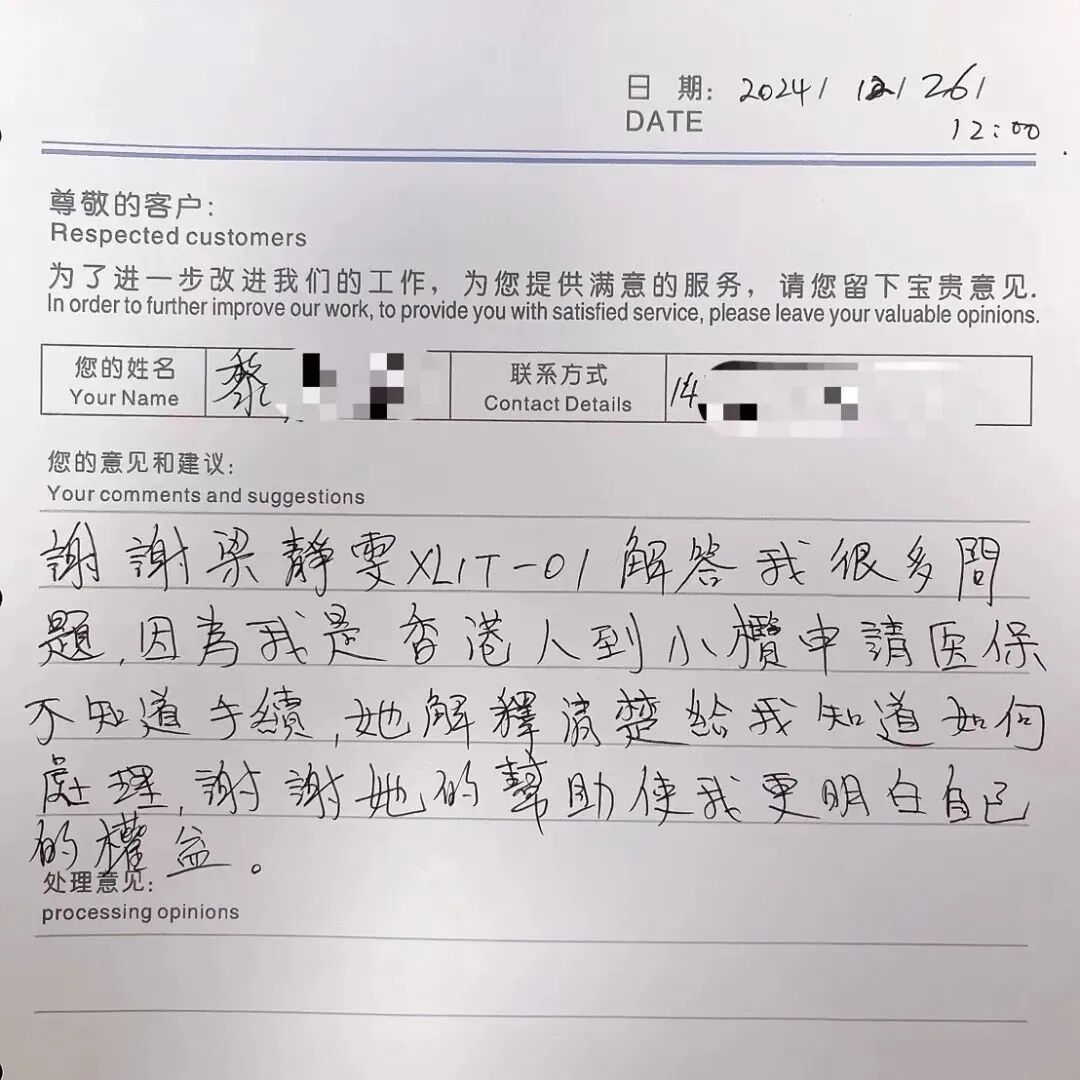 日 期: 2024/ 12/ 26/
DATE
12:00
尊敬的客户:
Respected customers
为了进一步改进我们的工作，为您提供满意的服务，请您留下宝贵意见.
In order to further improve our work, to provide you with satisfied service, please leave your valuable opinions.
您的姓名 黎 联系方式 14
Your Name Contact Details
您的意见和建议:
Your comments and suggestions
謝謝梁靜雯XLIT-01解答我很多問
題,因為我是香港人到小欖申請医保
不知道手續,她解釋清楚給我知道如何
處理,謝謝她的幫助使我更明白自己
的權益。
处理意见:
processing opinions